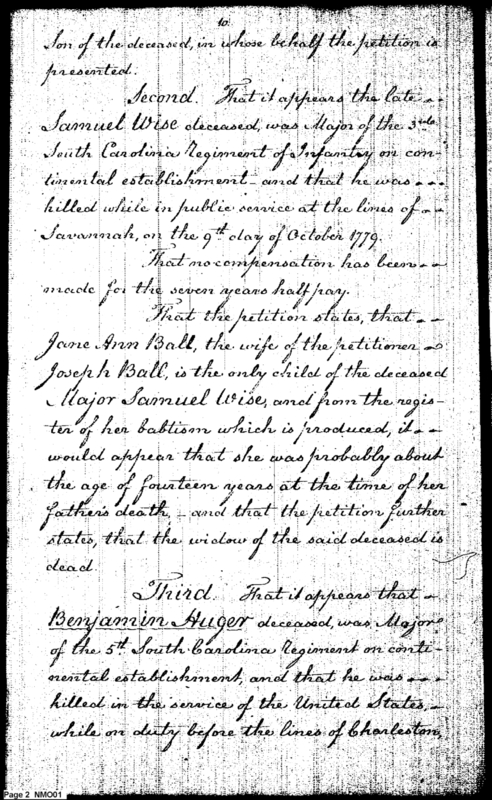 10
Son of the deceased, in whose behalf the petition is
presented.
Second. That it appears the late
Samuel Wise deceased, was Major of the 3rd
South Carolina Regiment of Infantry on con-
tinental establishment - and that he was
killed while in public service at the lines of
Savannah, on the 9th day of October 1779.
That no compensation has been
made for the seven years half pay.
That the petition states, that
Jane Ann Ball, the wife of the petitioner
Joseph Ball, is the only child of the deceased
Major Samuel Wise, and from the regis-
ter of her babtism which is produced, it
would appear that she was probably about
the age of fourteen years at the time of her
father's death, - and that the petition further
states, that the widow of the said deceased is
dead.
Third. That it appears that
Benjamin Huger deceased, was Major
of the 5th South Carolina Regiment on conti-
nental establishment, and that he was
killed in the service of the United States,
while on duty before the lines of Charleston,
Page 2 NMO01